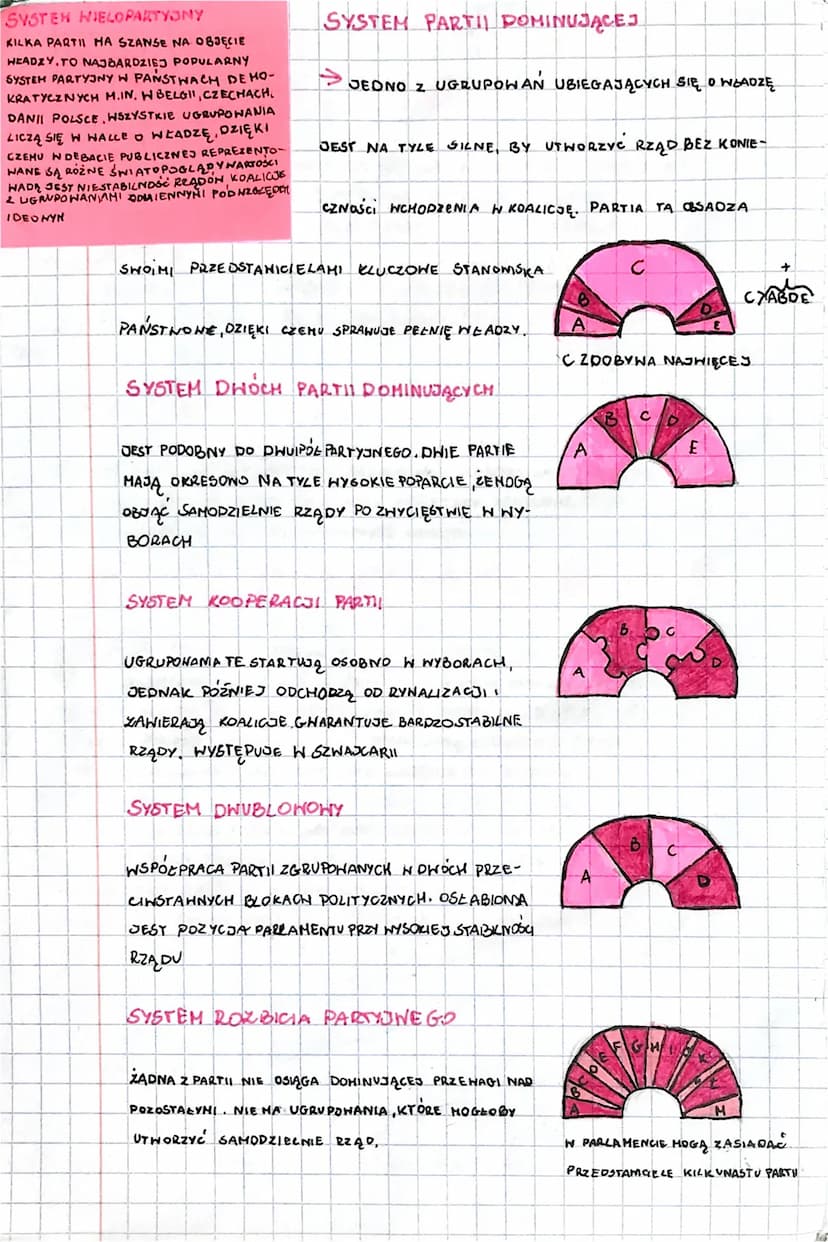 SYSTEM WIELOPARTYJNY
KILKA PARTII MA SZANSE NA OBJĘCIE
WŁADZY. TO NAJBARDZIEJ POPULARNY
SYSTEM PARTYJNY W PAŃSTWACH DEMO-
KRATYCZNYCH M.IN. W BELGII, CZECHACH.
DANII POLSCE. WSZYSTKIE UGRUPOWANIA
LICZĄ SIĘ W WALCE O WŁADZĘ, DZIĘKI
CZEMU W DEBACIE PUBLICZNEJ REPREZENTO-
WANE SĄ RÓŻNE ŚWIATOPOGLĄDY WARTOŚCI
WADĄ JEST NIESTABILNOŚĆ RZĄDÓW KOALICJE
Z UGRUPOWANIAMI ODMIENNYMI POD WZGLĘDEM
IDEOWYM
SYSTEM PARTII DOMINUJĄCEJ
→ JEDNO Z UGRUPOWAŃ UBIEGAJĄCYCH SIĘ O WŁADZĘ
JEST NA TYLE SILNE, BY UTWORZYĆ RZĄD BEZ KONIE-
CZNOŚCI WCHODZENIA W KOALICJĘ. PARTIA TA OBSADZA
SWOIMI PRZEDSTAWICIELAMI KLUCZOWE STANOWISKA
PAŃSTWOWE, DZIĘKI CZEMU SPRAWUJE PEŁNIĘ WŁADZY.
A
B
C
D
E
+
C>ABDE
C ZDOBYWA NAJWIĘCEJ
SYSTEM DWÓCH PARTII DOMINUJĄCYCH
JEST PODOBNY DO DWUIPÓŁ PARTYJNEGO. DWIE PARTIE
MAJĄ OKRESOWO NA TYLE WYSOKIE POPARCIE, ŻE MOGĄ
OBJĄĆ SAMODZIELNIE RZĄDY PO ZWYCIĘSTWIE W WY-
BORACH
A
B
C
D
E
SYSTEM KOOPERACJI PARTII
UGRUPOWANIA TE STARTUJĄ OSOBNO W WYBORACH,
JEDNAK PÓŹNIEJ ODCHODZĄ OD RYWALIZACJI I
ZAWIERAJĄ KOALICJE. GWARANTUJE BARDZO STABILNE
RZĄDY. WYSTĘPUJE W SZWAJCARII
A
B
C
D
SYSTEM DWUBLOKOWY
WSPÓŁPRACA PARTII ZGRUPOWANYCH W DWÓCH PRZE-
CIWSTAWNYCH BLOKACH POLITYCZNYCH. OSŁABIONA
JEST POZYCJA PARLAMENTU PRZY WYSOKIEJ STABILNOŚCI
RZĄDU
A
B
C
D
SYSTEM ROZBICIA PARTYJNEGO
ŻADNA Z PARTII NIE OSIĄGA DOMINUJĄCEJ PRZEWAGI NAD
POZOSTAŁYMI. NIE MA UGRUPOWANIA, KTÓRE MOGŁOBY
UTWORZYĆ SAMODZIELNIE RZĄD.
A
B
C
D
E
F
G
H
I
J
K
L
Ł
M
W PARLAMENCIE MOGĄ ZASIADAĆ
PRZEDSTAWICIELE KILKUNASTU PARTII